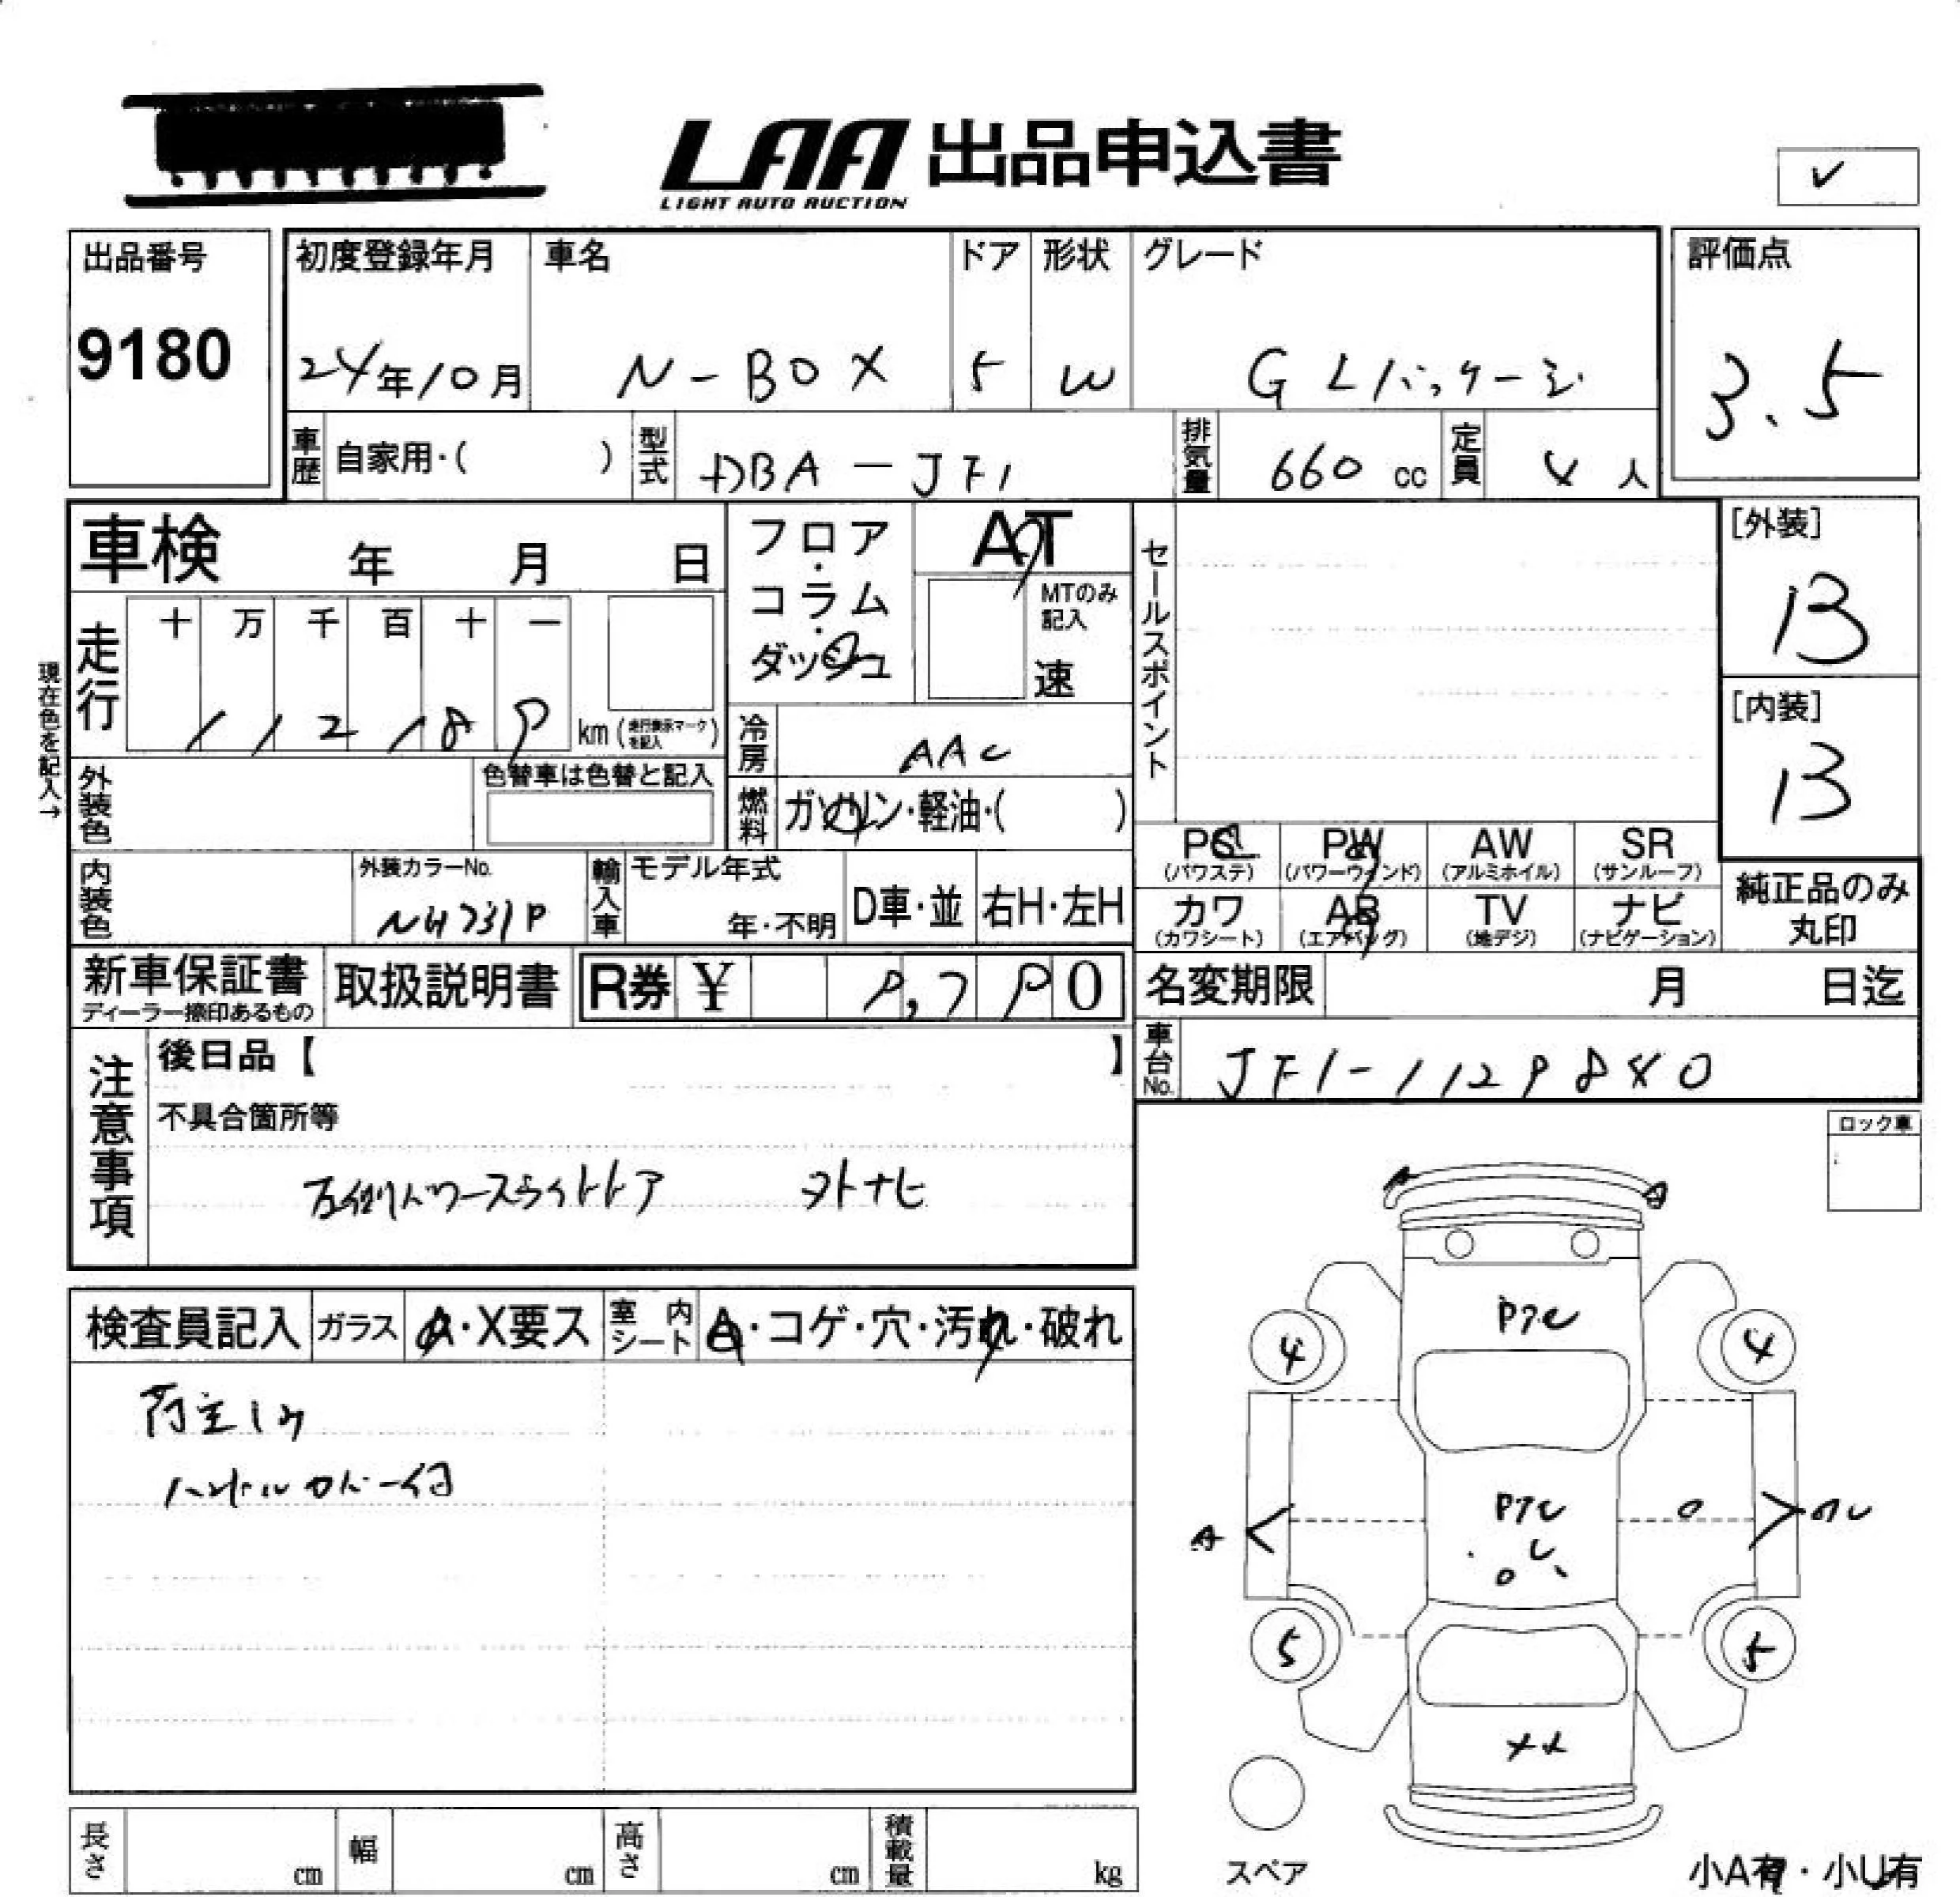 LAA 出品申込書
LIGHT AUTO AUCTION
✓
出品番号
9180
初度登録年月
24年10月
車名
N-BOX
ドア
5
形状
W
グレード
G Lパッケージ
評価点
3.5
車歴
自家用・( )
型式
DBA-JF1
排気量
660 cc
定員
4 人
車検 年 月 日
フロア・コラム・ダッシュ
AT
MTのみ記入
速
セールスポイント
[外装]
B
[内装]
B
現在色を記入→
走行
十 万 千 百 十 一
112189 km (走行表示マークを記入)
冷房
AAC
外装色
色替車は色替と記入
燃料
ガソリン・軽油・( )
PS
(パワステ)
PW
(パワーウィンド)
AW
(アルミホイル)
SR
(サンルーフ)
カワ
(カワシート)
AB
(エアバッグ)
TV
(地デジ)
ナビ
(ナビゲーション)
純正品のみ丸印
内装色
外装カラーNo.
NH731P
輸入車
モデル年式
年・不明
D車・並
右H・左H
新車保証書
ディーラー捺印あるもの
取扱説明書
R券 ¥ 9,790
名変期限 月 日迄
車台No.
JF1-1129840
注意事項
後日品【 】
不具合箇所等
左側パワースライドドア 外ナビ
ロック車
検査員記入
ガラス
A・X要ス
室内シート
A・コゲ・穴・汚れ・破れ
ハンドルカバー付
A
A
4
4
A
5
5
スペア
小A有・小U有
長さ cm
幅 cm
高さ cm
積載量 kg